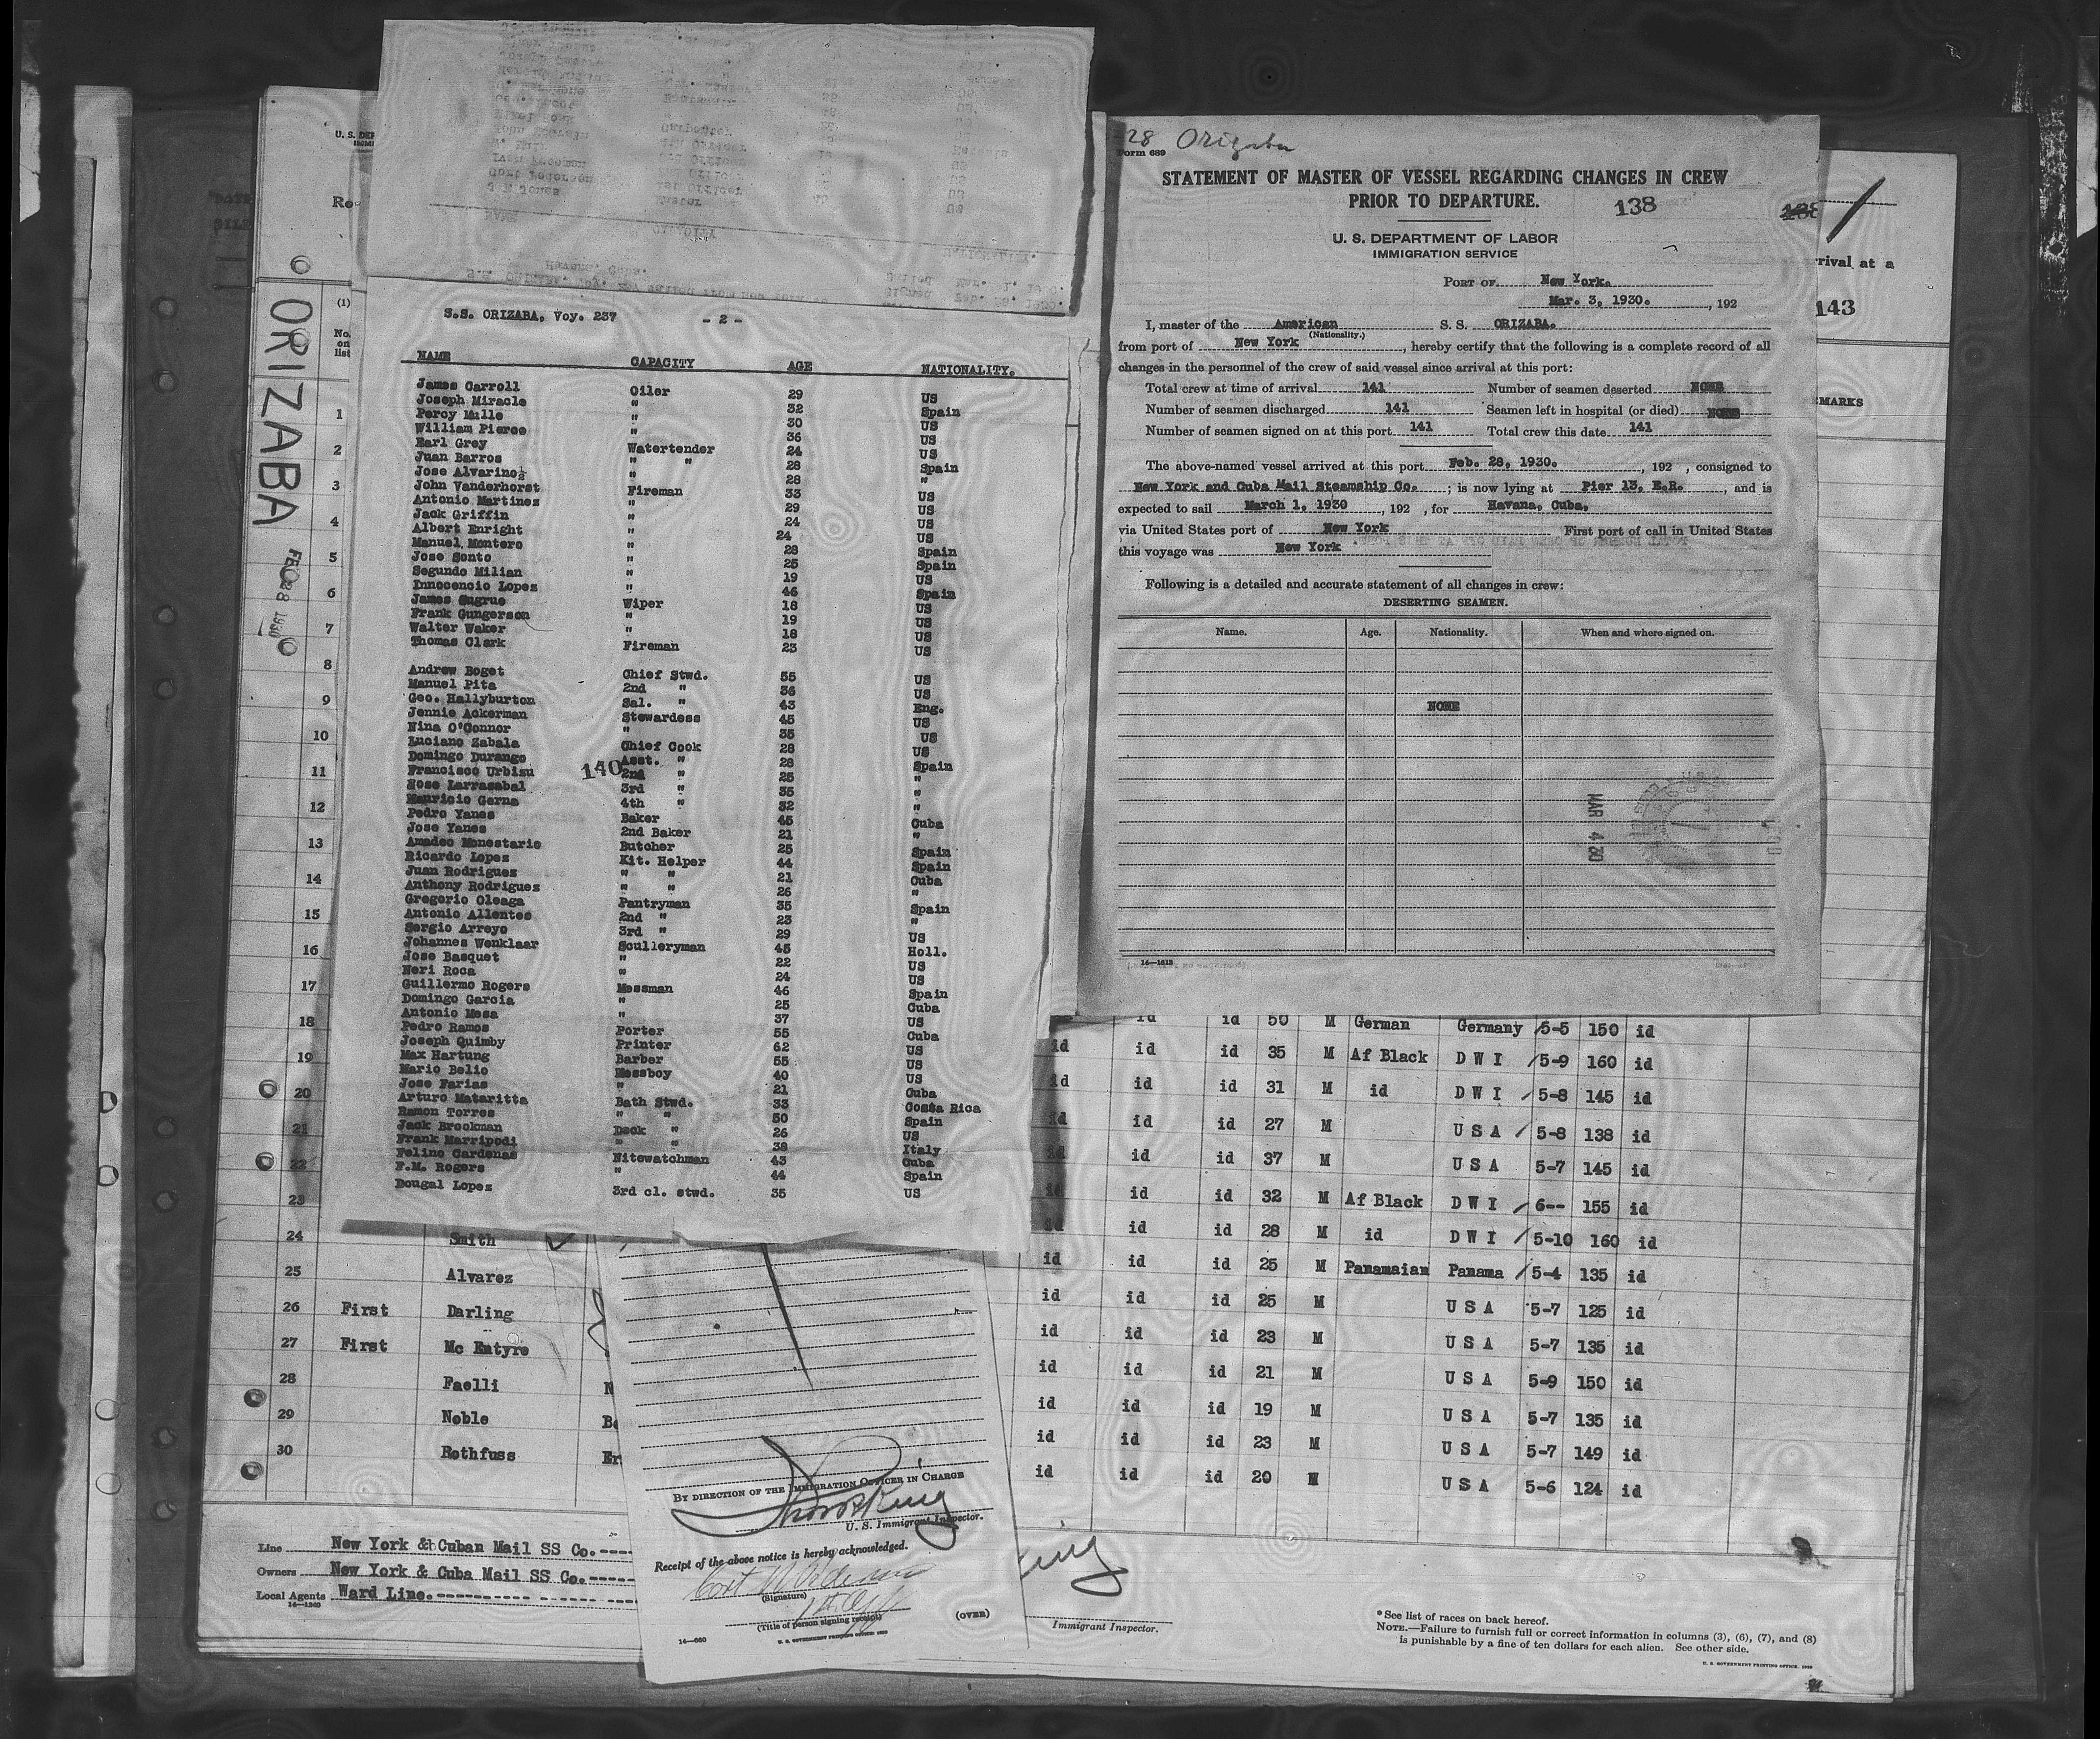 S.S. ORIZABA, Voy. 237 - 2 -
NAME CAPACITY AGE NATIONALITY.
James Carroll Oiler 29 US
Joseph Miracle " 32 Spain
Percy Mills " 30 US
William Pierce " 36 US
Earl Grey Watertender 24 US
Juan Barros " " 28 Spain
Jose Alvarino " 28 "
John Vanderhorst Fireman 33 US
Antonio Martines " 29 US
Jack Griffin " 24 US
Albert Enright " 24 US
Manuel Montero " 28 Spain
Jose Sonto " 25 Spain
Segundo Milian " 19 US
Innocencio Lopes " 46 Spain
James Sugrue Wiper 18 US
Frank Gungerson " 19 US
Walter Waker " 18 US
Thomas Clark Fireman 23 US
Andrew Boget Chief Stwd. 55 US
Manuel Pita 2nd " 36 US
Geo. Hallyburton Sal. " 43 Eng.
Jennie Ackerman Stewardess 45 US
Nina O'Connor " 35 US
Luciano Zabala Chief Cook 28 US
Domingo Durango Asst. " 28 Spain
Francisco Urbisu 140 2nd " 25 "
Jose Larrasabal 3rd " 35 "
Mauricio Gerna 4th " 32 "
Pedro Yanes Baker 45 Cuba
Jose Yanes 2nd Baker 21 "
Amadeo Monestario Butcher 25 Spain
Ricardo Lopes Kit. Helper 44 Spain
Juan Rodrigues " " 21 Cuba
Anthony Rodrigues " " 26 "
Gregorio Oleaga Pantryman 35 Spain
Antonio Allentes 2nd " 23 "
Sergio Arroyo 3rd " 29 US
Johannes Wenklaar Sculleryman 45 Holl.
Jose Basquet " 22 US
Neri Roca " 24 US
Guillermo Rogers Messman 46 Spain
Domingo Garcia " 25 Cuba
Antonio Mesa " 37 US
Pedro Ramos Porter 55 Cuba
Joseph Quimby Printer 62 US
Max Hartung Barber 55 US
Mario Belio Messboy 40 US
Jose Farias " 21 Cuba
Arturo Mataritta Bath Stwd. 33 Costa Rica
Ramon Torres " " 50 Spain
Jack Brookman Deck " 26 US
Frank Marripodi " " 38 Italy
Felino Cardenas Nitewatchman 43 Cuba
F.M. Rogers " 44 Spain
Dougal Lopez 3rd cl. stwd. 35 US
28 Orizaba
Form 689
STATEMENT OF MASTER OF VESSEL REGARDING CHANGES IN CREW
PRIOR TO DEPARTURE. 138
U. S. DEPARTMENT OF LABOR
IMMIGRATION SERVICE
PORT OF New York.
Mar. 3, 1930. , 192
I, master of the American S. S. ORIZABA.
(Nationality.)
from port of New York , hereby certify that the following is a complete record of all
changes in the personnel of the crew of said vessel since arrival at this port:
Total crew at time of arrival 141 Number of seamen deserted NONE
Number of seamen discharged 141 Seamen left in hospital (or died) NONE
Number of seamen signed on at this port 141 Total crew this date 141
The above-named vessel arrived at this port Feb. 28, 1930. , 192 , consigned to
New York and Cuba Mail Steamship Co. ; is now lying at Pier 13, E.R. , and is
expected to sail March 1, 1930 , 192 , for Havana, Cuba.
via United States port of New York First port of call in United States
this voyage was New York
Following is a detailed and accurate statement of all changes in crew:
DESERTING SEAMEN.
Name. Age. Nationality. When and where signed on.
NONE
MAR 4 30
14—1613
rival at a
143
MARKS
ORIZABA
FEB 28 1930
U. S. DEP
Re
(1)
No. on list
1
2
3
4
5
6
7
8
9
10
11
12
13
14
15
16
17
18
19
20
21
22
23
24 Smith
25 Alvarez
26 First Darling
27 First Mc Entyre
28 Faelli N
29 Noble Be
30 Rothfuss Er
id id 50 M German Germany 5-5 150 id
id id id 35 M Af Black D W I 5-9 160 id
id id id 31 M id D W I 5-8 145 id
id id id 27 M U S A 5-8 138 id
id id id 37 M U S A 5-7 145 id
id id id 32 M Af Black D W I 6-- 155 id
id id id 28 M id D W I 5-10 160 id
id id id 25 M Panamaian Panama 5-4 135 id
id id id 25 M U S A 5-7 125 id
id id id 23 M U S A 5-7 135 id
id id id 21 M U S A 5-9 150 id
id id id 19 M U S A 5-7 135 id
id id id 23 M U S A 5-7 149 id
id id id 20 M U S A 5-6 124 id
Line New York & Cuban Mail SS Co.
Owners New York & Cuba Mail SS Co.
Local Agents Ward Line.
14—1240
BY DIRECTION OF THE IMMIGRATION OFFICER IN CHARGE
U. S. Immigrant Inspector.
Receipt of the above notice is hereby acknowledged.
(Signature)
(Title of person signing receipt)
(OVER)
14—660
Immigrant Inspector.
* See list of races on back hereof.
NOTE.—Failure to furnish full or correct information in columns (3), (6), (7), and (8)
is punishable by a fine of ten dollars for each alien. See other side.
U. S. GOVERNMENT PRINTING OFFICE: 1929